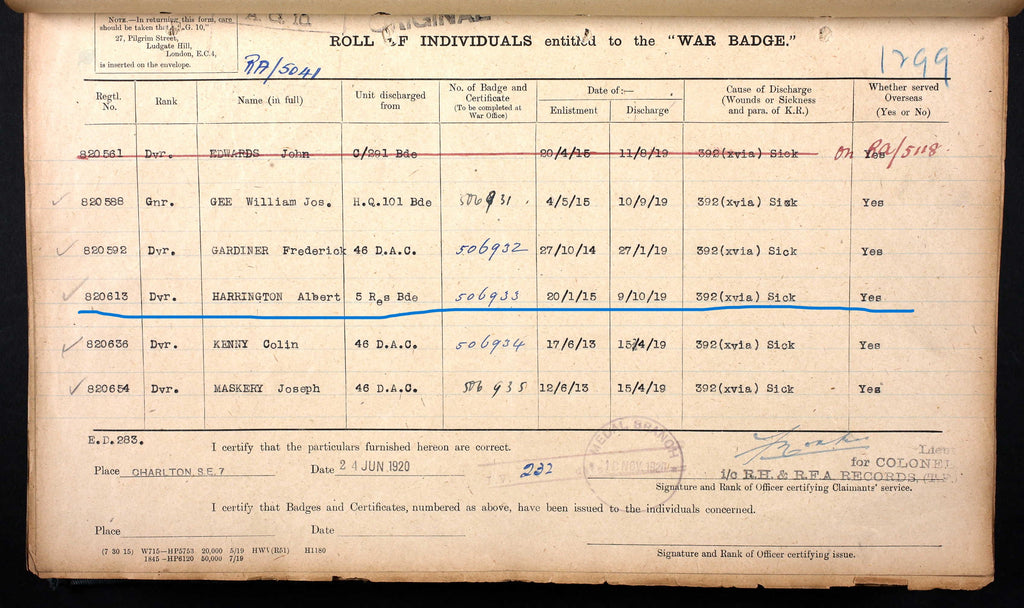 NOTE.—In returning this form, care
should be taken that "A.G. 10,"
27, Pilgrim Street,
Ludgate Hill,
London, E.C.4,
is inserted on the envelope.
A.G. 10
ORIGINAL
ROLL OF INDIVIDUALS entitled to the "WAR BADGE."
RA/5041
1299
Regtl. No. Rank Name (in full) Unit discharged from No. of Badge and Certificate (To be completed at War Office) Date of:— Enlistment Discharge Cause of Discharge (Wounds or Sickness and para. of K.R.) Whether served Overseas (Yes or No)
820561 Dvr. EDWARDS John C/291 Bde 20/4/15 11/8/19 392(xvia) Sick on RA/5118 Yes
820588 Gnr. GEE William Jos. H.Q.101 Bde 506931 4/5/15 10/9/19 392(xvia) Sick Yes
820592 Dvr. GARDINER Frederick 46 D.A.C. 506932 27/10/14 27/1/19 392(xvia) Sick Yes
820613 Dvr. HARRINGTON Albert 5 Res Bde 506933 20/1/15 9/10/19 392(xvia) Sick Yes
820636 Dvr. KENNY Colin 46 D.A.C. 506934 17/6/13 15/4/19 392(xvia) Sick Yes
820654 Dvr. MASKERY Joseph 46 D.A.C. 506935 12/6/13 15/4/19 392(xvia) Sick Yes
E.D.283.
I certify that the particulars furnished hereon are correct.
Place CHARLTON, S.E.7 Date 24 JUN 1920
232
MEDAL BRANCH
NOV 1920
Lieut
for COLONEL
i/c R.H. & R.F.A RECORDS, (T.F.)
Signature and Rank of Officer certifying Claimants' service.
I certify that Badges and Certificates, numbered as above, have been issued to the individuals concerned.
Place Date
(7 30 15) W715—HP5753 20,000 5/19 HWV(R51) H1180
1845—HP6120 50,000 7/19
Signature and Rank of Officer certifying issue.